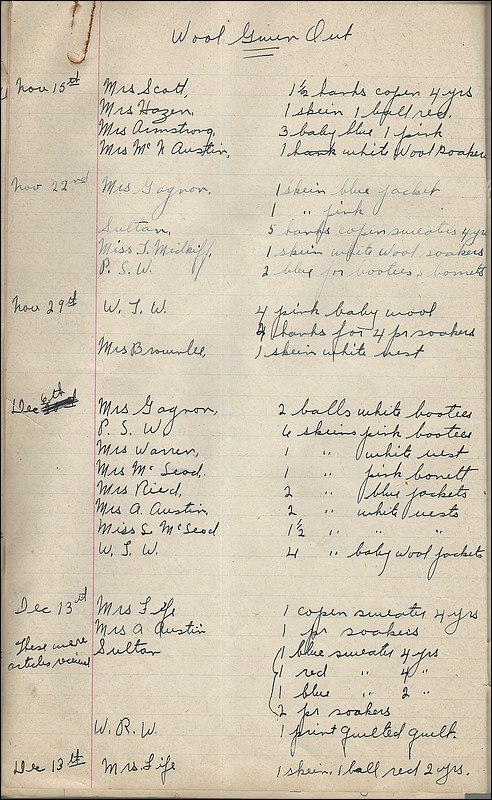 Wool Given Out
Nov 15th Mrs Scott, 1½ hanks copen 4 yrs
Mrs Hazen, 1 skein 1 ball red.
Mrs Armstrong, 3 baby blue 1 pink
Mrs Mc N Austin, 1 hank white wool soakers
Nov 22nd Mrs Gagnon, 1 skein blue jacket
1 " pink
Sultan, 5 hanks copen sweaters 4 yrs
Miss I. Midkiff, 1 skein white wool soakers
P. S. W. 2 blue for booties & bonnets
Nov 29th W. I. W. 4 pink baby wool
4 hanks for 4 pr soakers
Mrs Brownlee, 1 skein white vest
Dec 6th Mrs Gagnon, 2 balls white bootees
P. S. W. 6 skeins pink bootees
Mrs Warren, 1 " white vest
Mrs McLeod 1 " pink bonett
Mrs Ried, 2 " blue jackets
Mrs A. Austin 2 " white vests
Miss L McLeod 1½ " " "
W. I. W. 4 " baby wool jackets
Dec 13th Mrs Fife 1 copen sweater 4 yrs
Mrs A Austin 1 pr soakers
These were articles received Sultan 1 blue sweater 4 yrs
1 red " 4 "
1 blue " 2 "
2 pr soakers
W. R. W. 1 print quilted quilt.
Dec 13th Mrs. Fife 1 skein. 1 ball red 2 yrs.